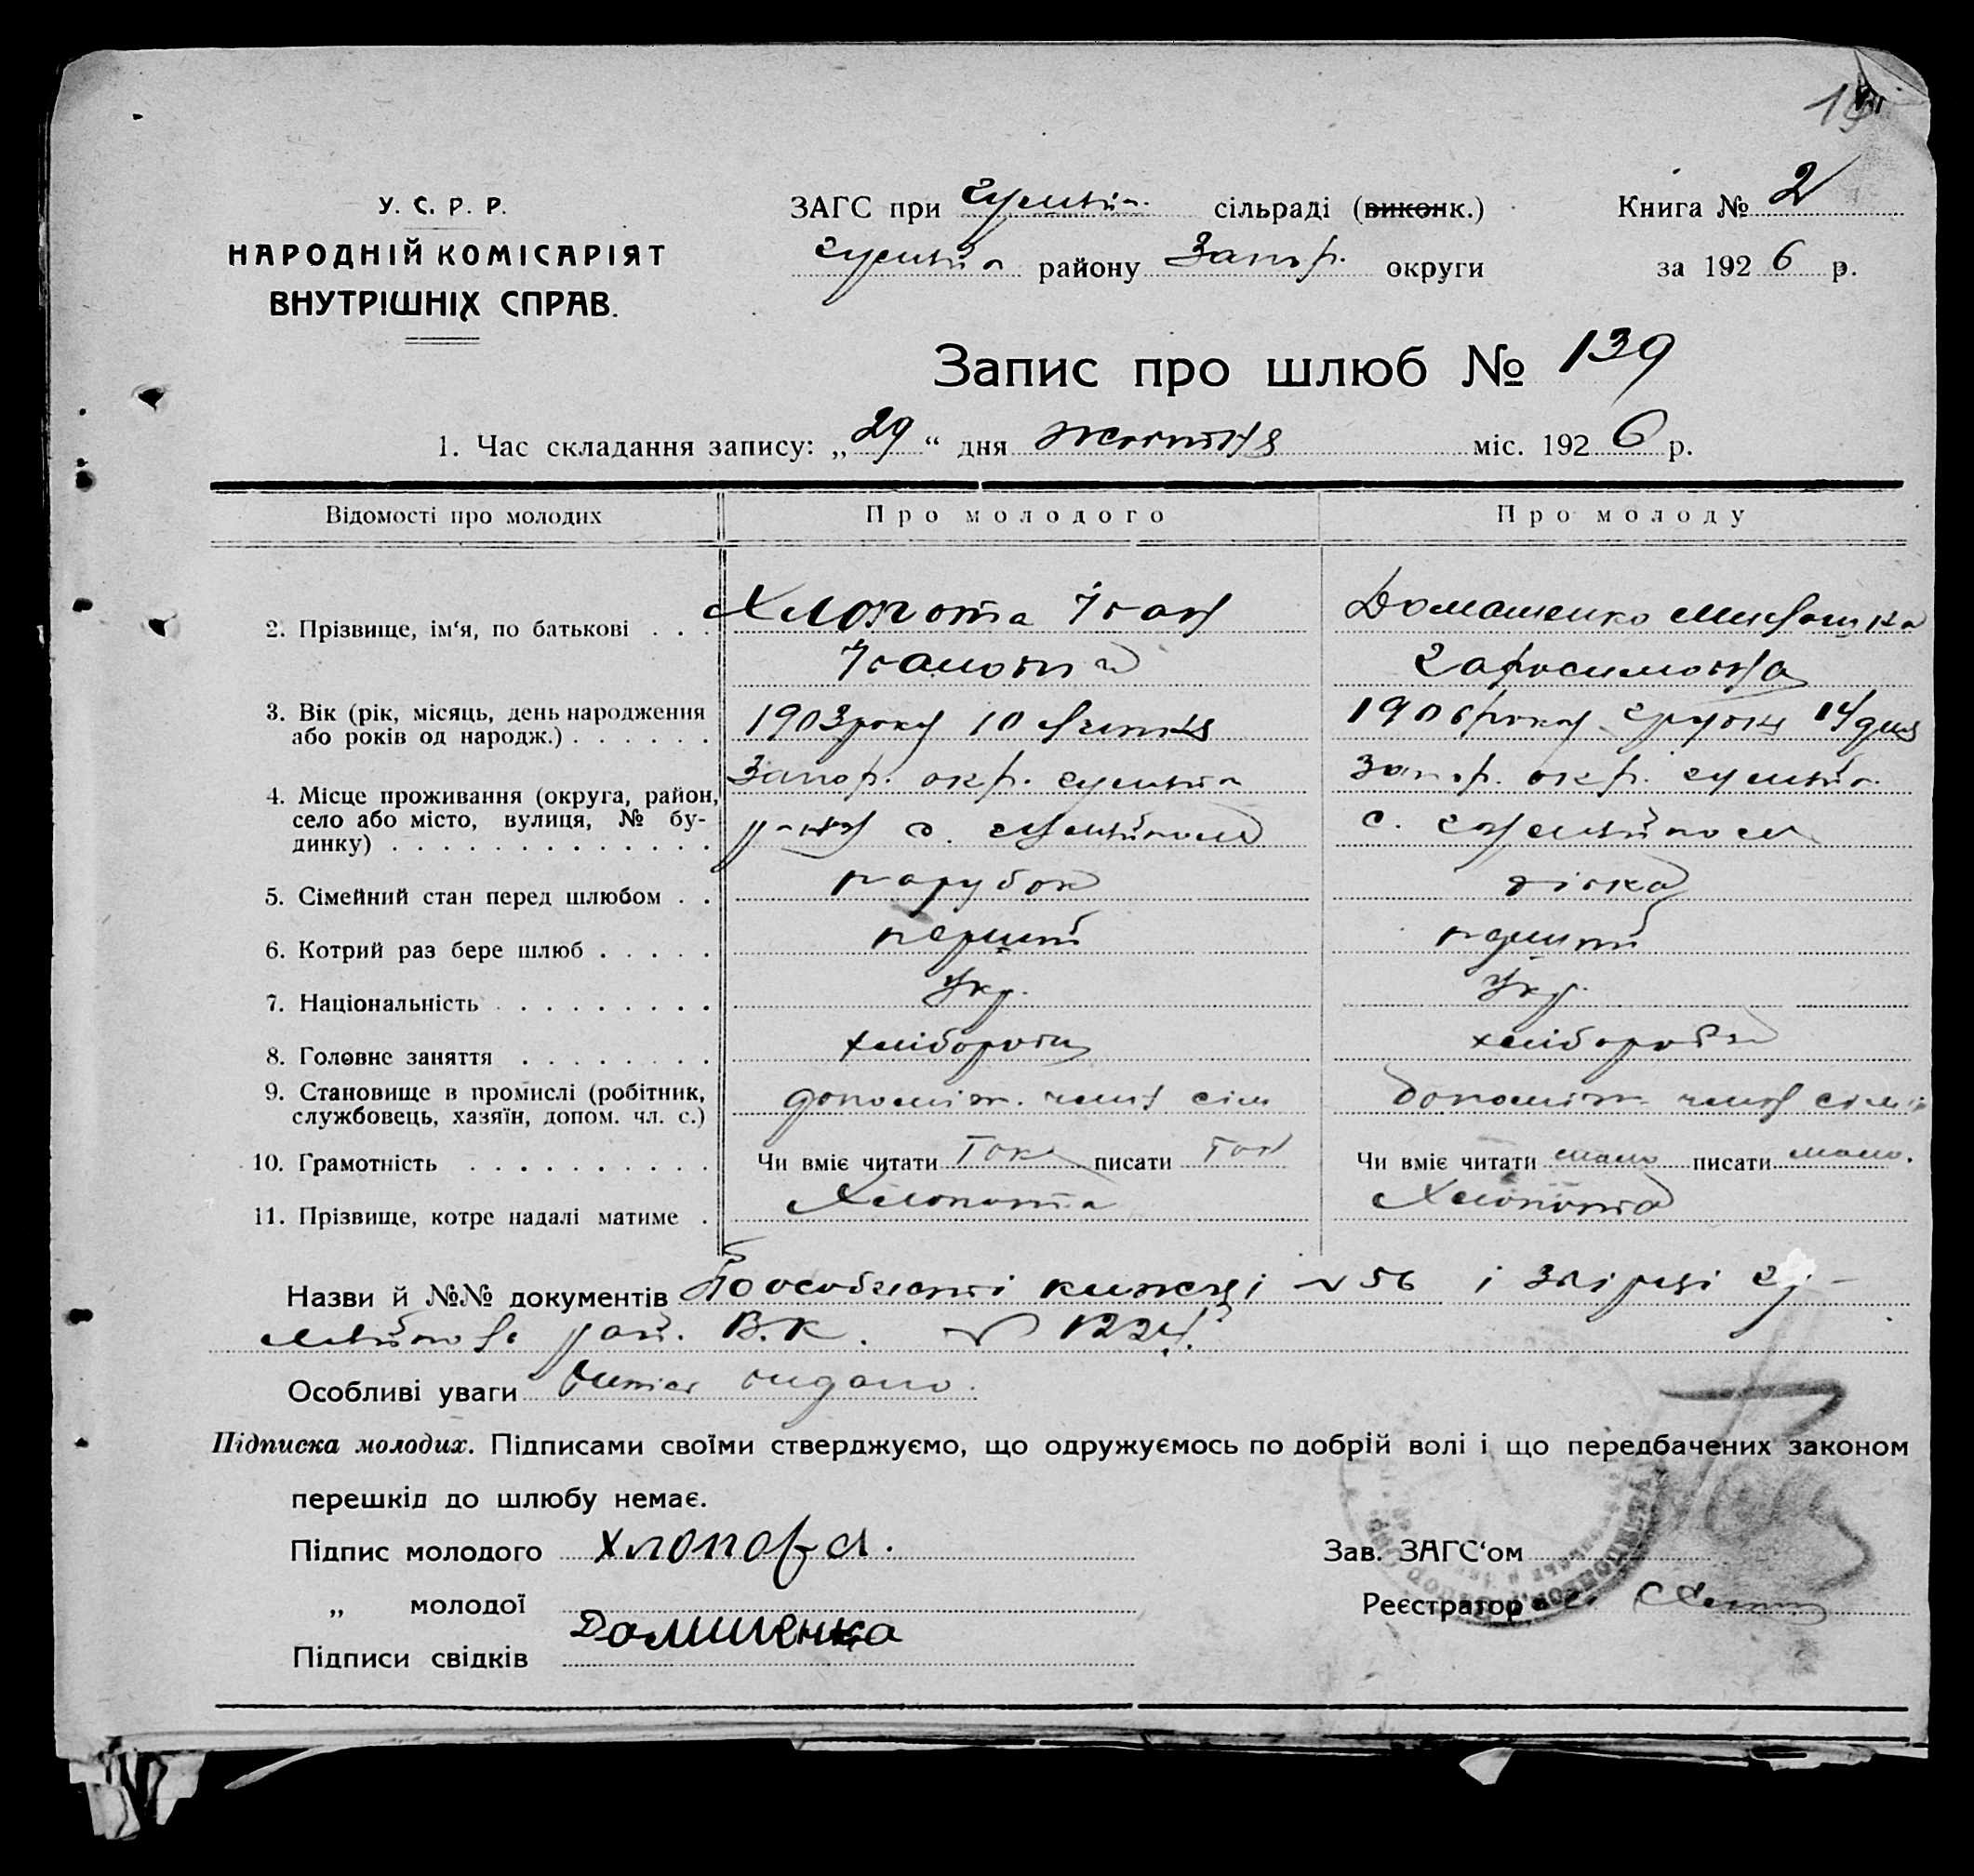 У. С. Р. Р.
НАРОДНІЙ КОМІСАРІЯТ
ВНУТРІШНІХ СПРАВ.
ЗАГС при Гуляйп. сільраді (виконк.)
Книга № 2
Гуляйп району Запор. округи
за 1926 р.
Запис про шлюб № 139
1. Час складання запису: „29“ дня жовтня міс. 1926 р.
Відомості про молодих
Про молодого
Про молоду
2. Прізвище, ім'я, по батькові . . .
Хлопота Іван
Іванович
Домашенко
Гарасимовна
3. Вік (рік, місяць, день народження
або років од народж.) . . . . . .
1903 року 10 липня
1906 року грудня 14 дня
4. Місце проживання (округа, район,
село або місто, вулиця, № бу-
динку) . . . . . . . . . . . . .
Запор. окр. Гуляйп
району с. Гуляйполе
Запор. окр. Гуляйп.
с. Гуляйполе
5. Сімейний стан перед шлюбом . .
парубок
дівка
6. Котрий раз бере шлюб . . . . .
перший
перший
7. Національність . . . . . . . . .
Укр.
Укр.
8. Головне заняття . . . . . . . .
хлібороб
хлібороб
9. Становище в промислі (робітник,
службовець, хазяїн, допом. чл. с.)
допоміж. член сім
допоміж член сім'ї
10. Грамотність . . . . . . . . . .
Чи вміє читати так писати так
Чи вміє читати мало писати мало.
11. Прізвище, котре надалі матиме .
Хлопота
Хлопота
Назви й №№ документів По особистій книжці № 56 і Гу-
ляйпол. рай. В.К. № 1224.
Особливі уваги видано.
Підписка молодих. Підписами своїми стверджуємо, що одружуємось по добрій волі і що передбачених законом
перешкід до шлюбу немає.
Підпис молодого Хлопота.
Зав. ЗАГС'ом
„ молодої
Домашенко
Реєстратор
Підписи свідків